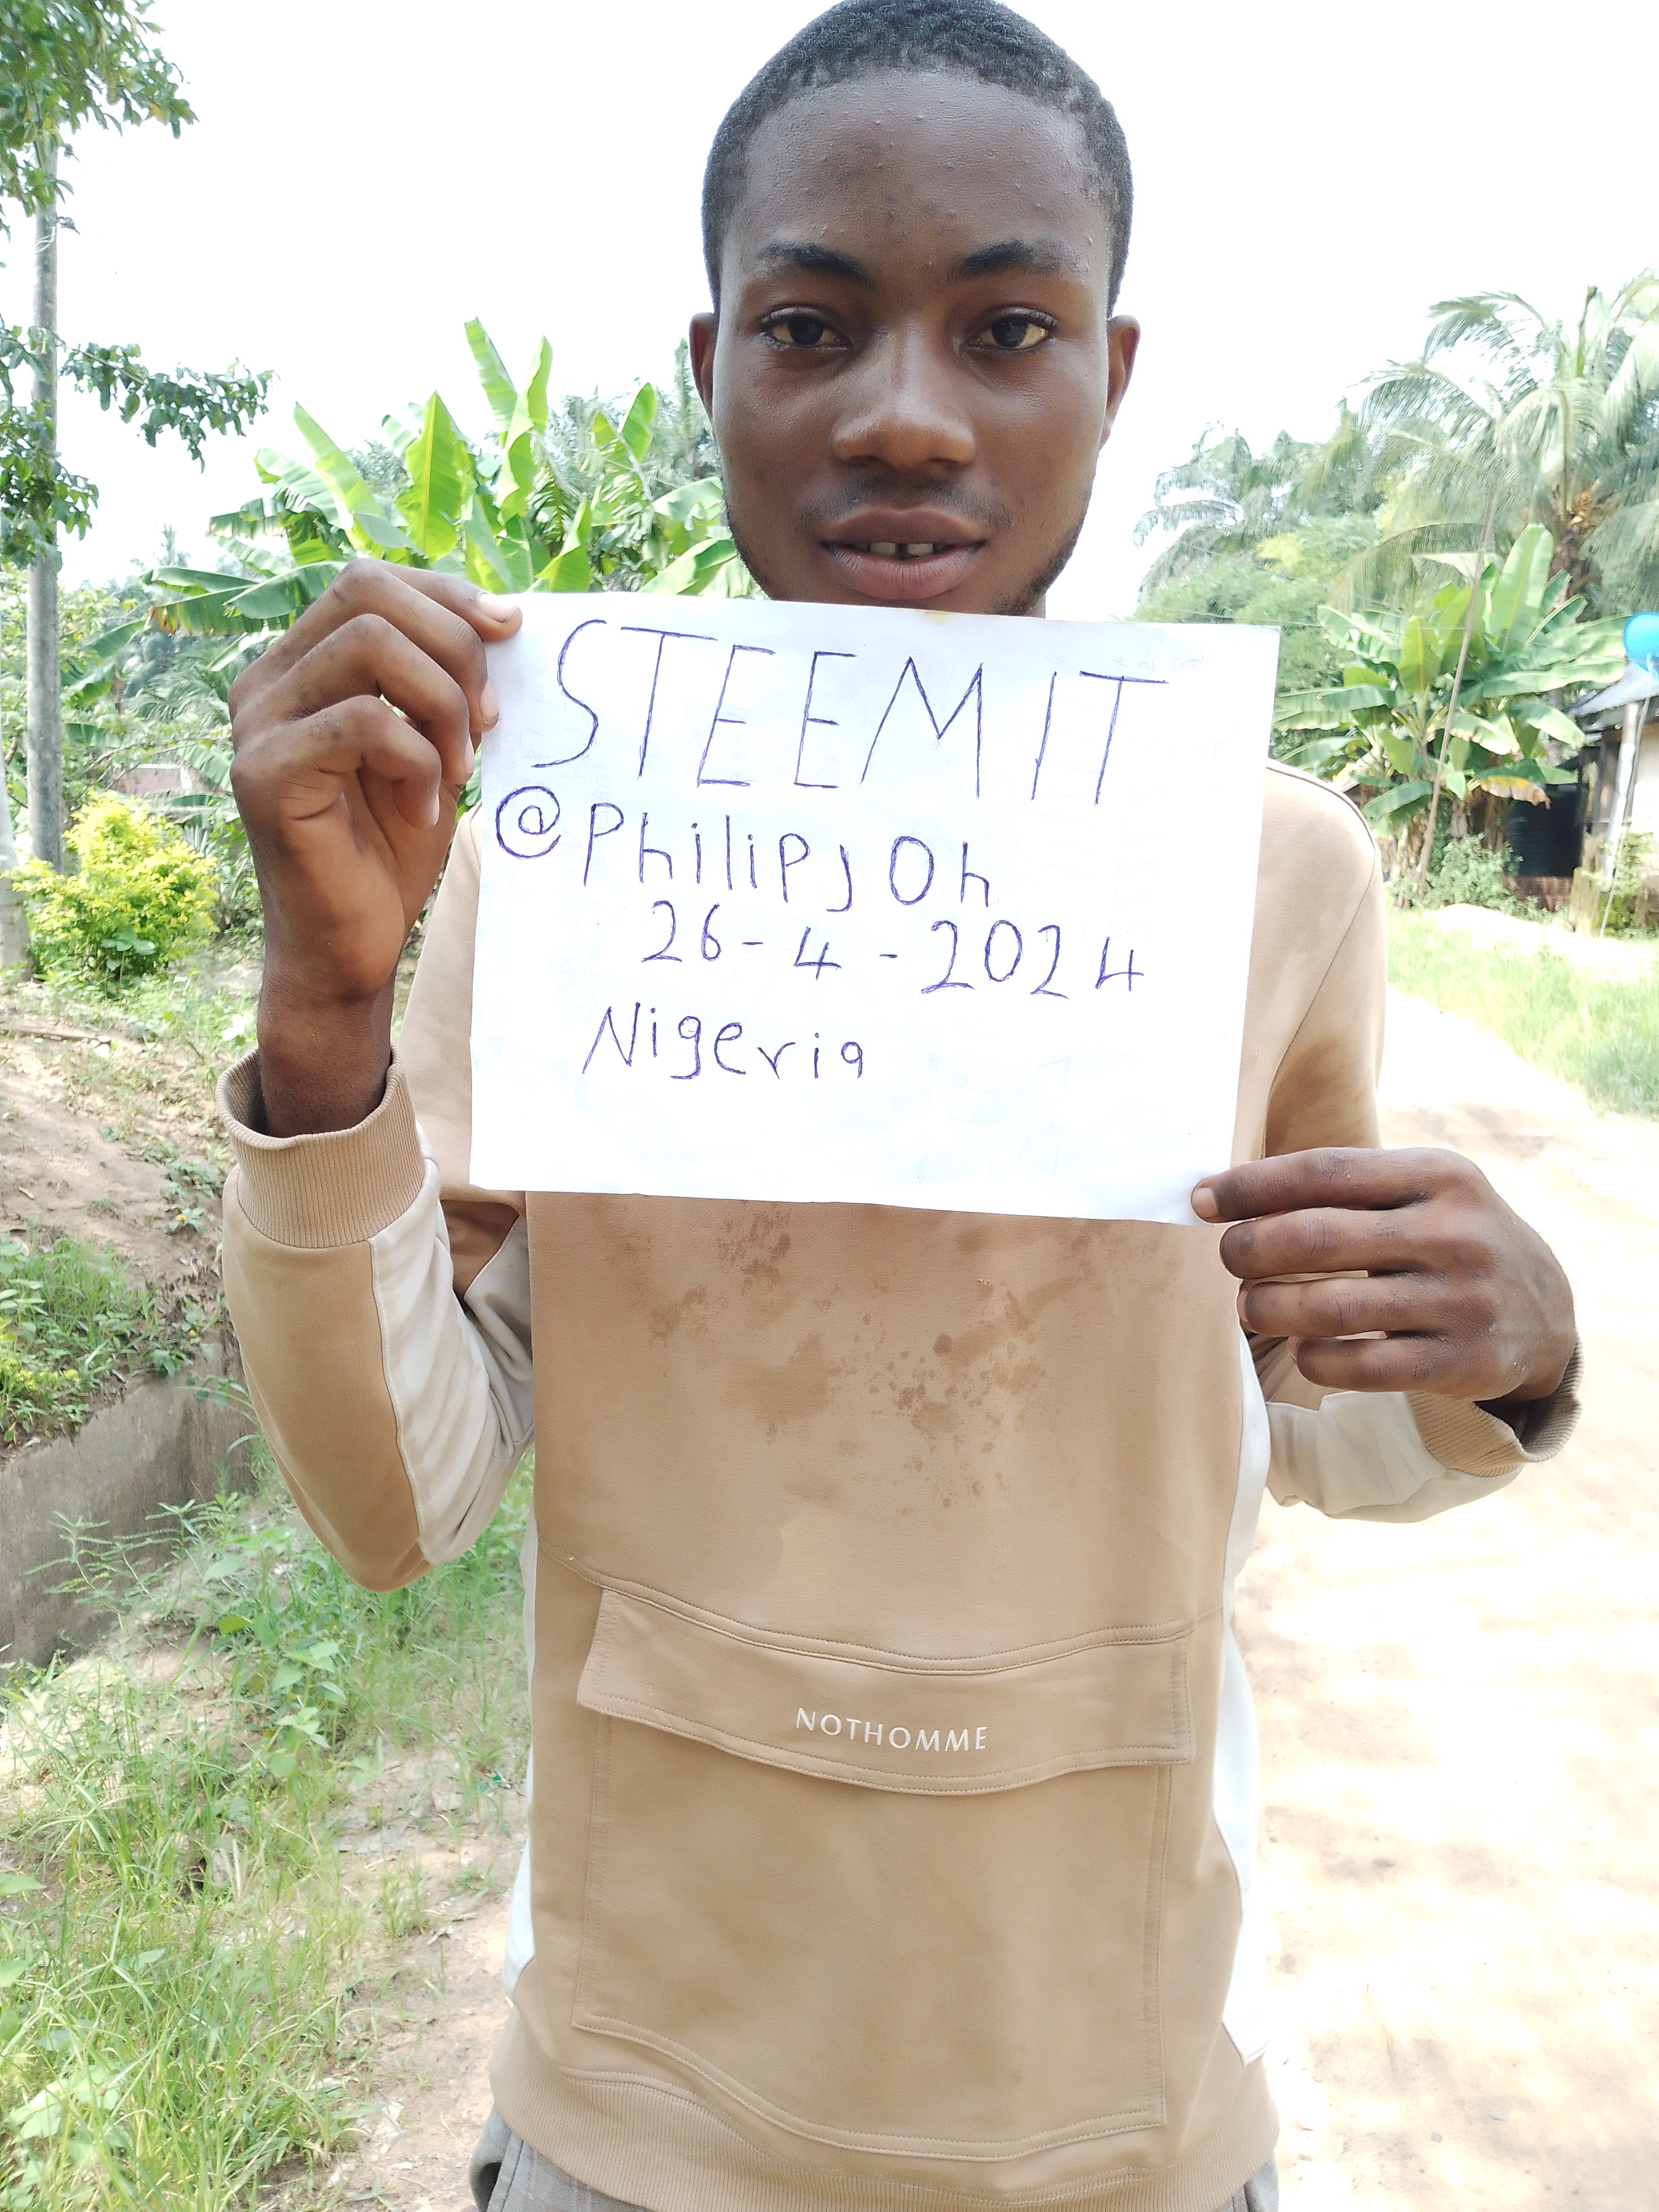 STEEMIT
@PhilipJOh
26-4-2024
Nigeria
NOTHOMME